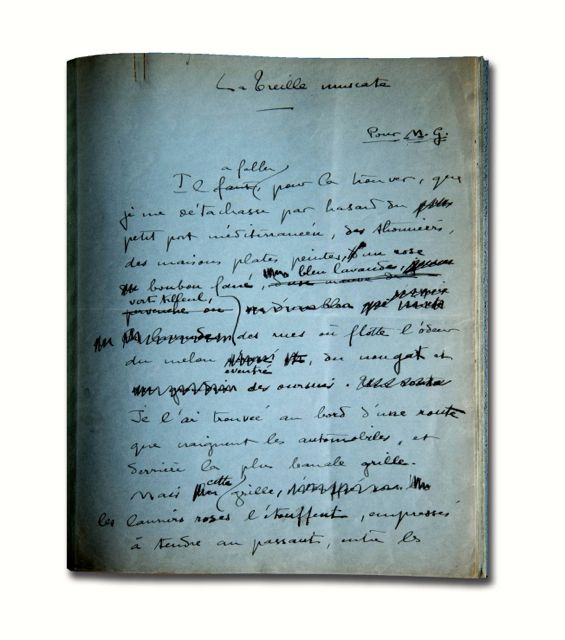 La Treille muscate
Pour M. G.
a fallu
Il faut, pour la trouver, que
je me détachasse par hasard du
petit port méditerranéen, des thonniers,
des maisons plates peintes, d'un rose
bonbon fané, bleu lavande,
vert tilleul,
pervenche ou
des rues où flotte l'odeur
du melon, du nougat et
éventré
des oursins.
Je l'ai trouvée au bord d'une route
que craignent les automobiles, et
derrière la plus banale grille.
cette
Mais grille,
les lauriers roses l'étouffent, empressés
à tendre au passant, entre les